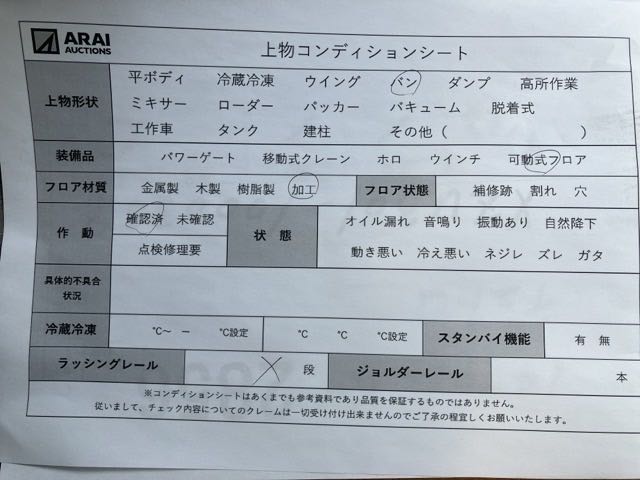 ARAI
AUCTIONS
上物コンディションシート
上物形状
平ボディ 冷蔵冷凍 ウイング バン ダンプ 高所作業
ミキサー ローダー パッカー バキューム 脱着式
工作車 タンク 建柱 その他（ ）
装備品 パワーゲート 移動式クレーン ホロ ウインチ 可動式フロア
フロア材質 金属製 木製 樹脂製 加工 フロア状態 補修跡 割れ 穴
作動 確認済 未確認
点検修理要
状態 オイル漏れ 音鳴り 振動あり 自然降下
動き悪い 冷え悪い ネジレ ズレ ガタ
具体的不具合
状況
冷蔵冷凍 ℃〜 ー ℃設定 ℃ ℃ ℃設定 スタンバイ機能 有 無
ラッシングレール X 段 ジョルダーレール 本
※コンディションシートはあくまでも参考資料であり品質を保証するものではありません。
従いまして、チェック内容についてのクレームは一切受け付け出来ませんのでご了承の程宜しくお願いいたします。